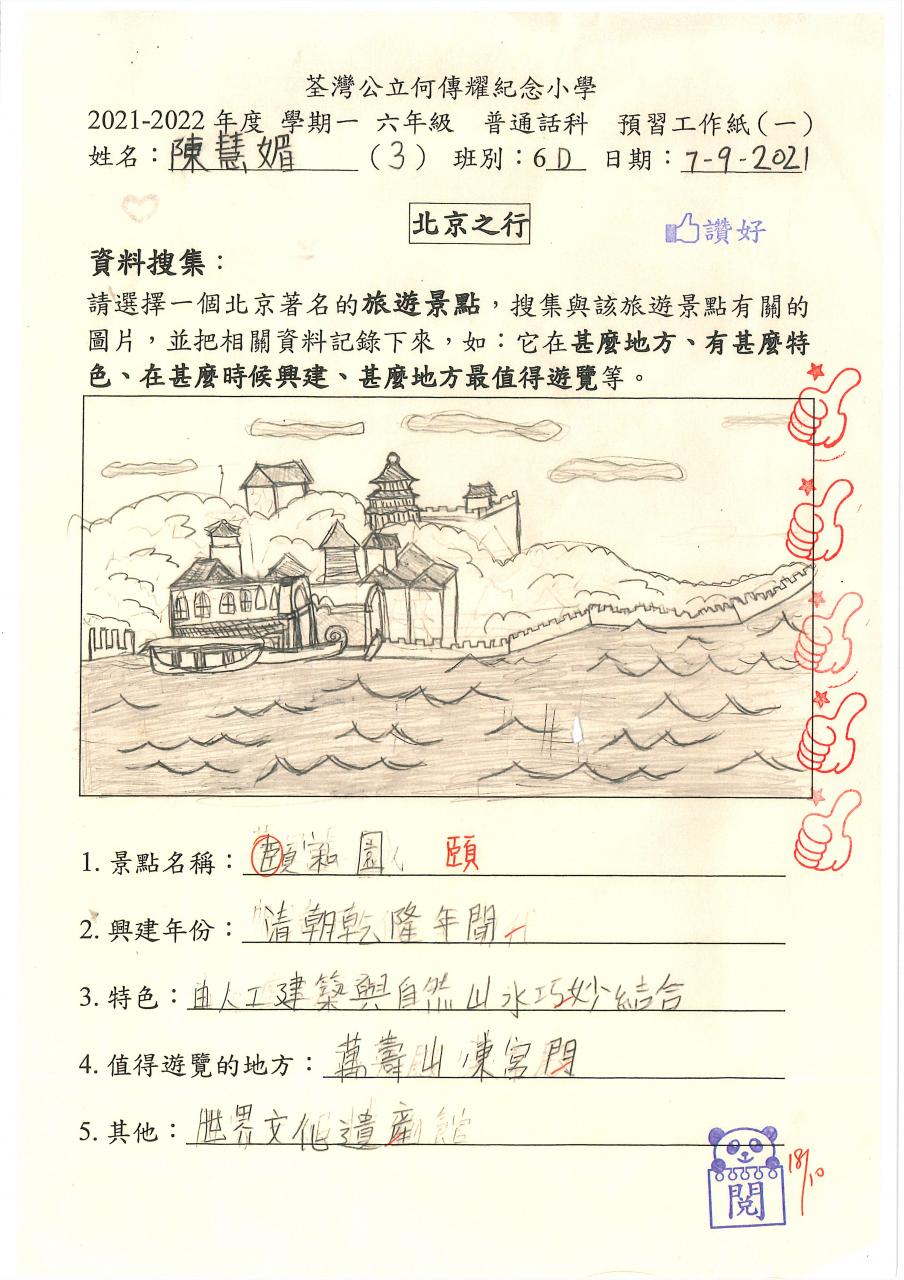 荃灣公立何傳耀紀念小學
2021-2022 年度 學期一 六年級 普通話科 預習工作紙(一)
姓名：陳慧媚（3） 班別：6D 日期：7-9-2021
北京之行
讚好
資料搜集：
請選擇一個北京著名的旅遊景點，搜集與該旅遊景點有關的
圖片，並把相關資料記錄下來，如：它在甚麼地方、有甚麼特
色、在甚麼時候興建、甚麼地方最值得遊覽等。
1. 景點名稱：頤和園 頤
2. 興建年份：清朝乾隆年間
3. 特色：由人工建築與自然山水巧妙結合
4. 值得遊覽的地方：萬壽山、東宮門
5. 其他：世界文化遺產
閱
18/10